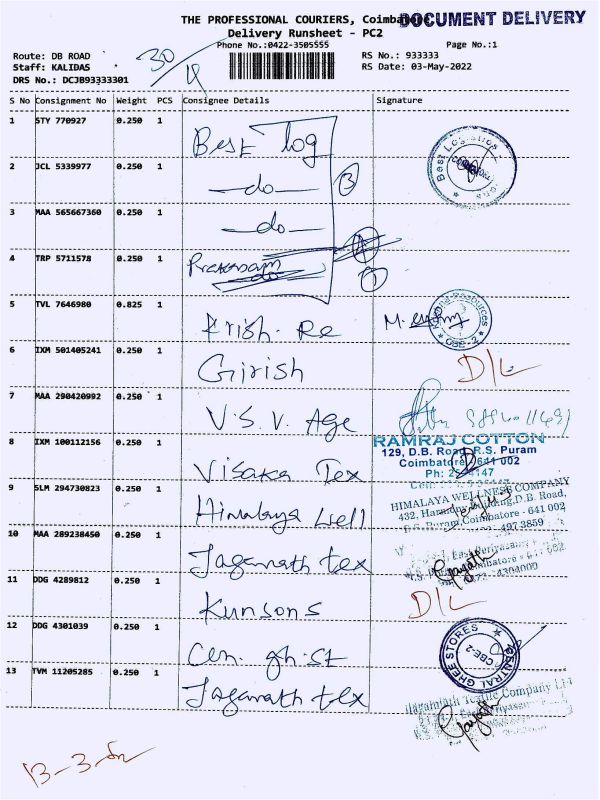 THE PROFESSIONAL COURIERS, Coimbatore
DOCUMENT DELIVERY
Delivery Runsheet - PC2
Phone No.:0422-3505555
Page No.:1
Route: DB ROAD
Staff: KALIDAS
DRS No.: DCJB93333301
30
RS No.: 933333
RS Date: 03-May-2022
S No Consignment No Weight PCS Consignee Details Signature
1 STY 770927 0.250 1 Best log
2 JCL 5339977 0.250 1 —do— 3
3 MAA 565667360 0.250 1 —do—
4 TRP 5711578 0.250 1 1
5 TVL 7646980 0.825 1 Krish. Re
6 IXM 501405241 0.250 1 Girish D/L
7 MAA 290420992 0.250 1 V.S.V. Age
8 IXM 100112156 0.250 1 Visaka Tex
RAMRAJ COTTON
129, D.B. Road, R.S. Puram
Coimbatore 641 002
9 SLM 294730823 0.250 1 Himalaya Well
HIMALAYA WELLNESS COMPANY
D.B. Road,
Coimbatore - 641 002
10 MAA 289238450 0.250 1 Jaganath tex
11 DDG 4289812 0.250 1 Kunsons D/L
12 DDG 4301039 0.250 1 Cen. gh. St
CENTRAL GHEE STORES
CBE-2
13 TVM 11205285 0.250 1 Jaganath tex
13-3-